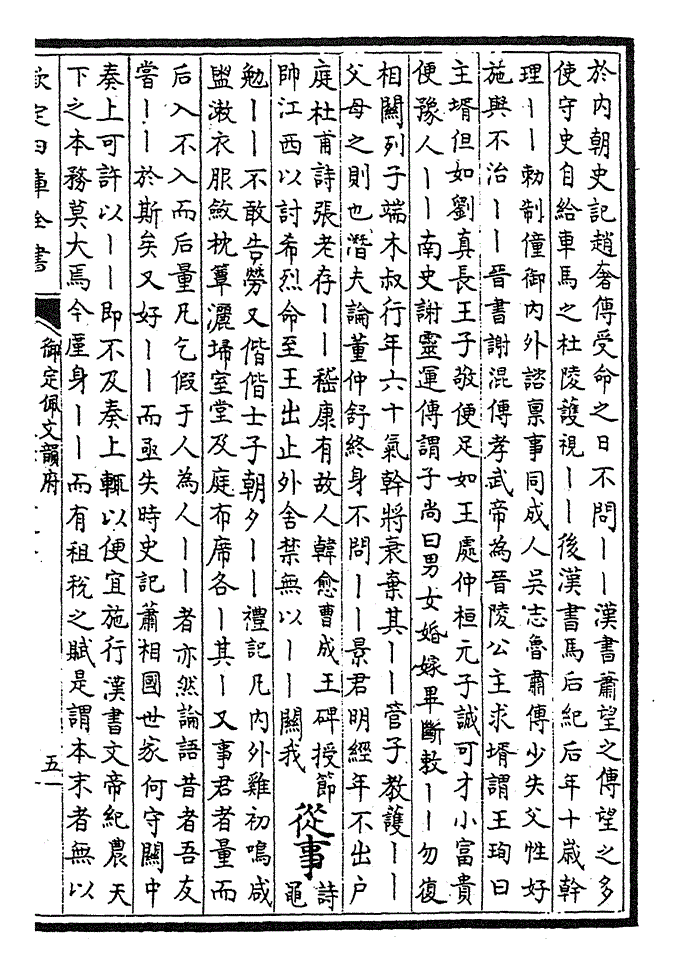 於內朝史記趙奢傳受命之日不問丨丨漢書蕭望之傳望之多
使守史自給車馬之杜陵護視丨丨後漢書馬后紀后年十歲幹
理丨丨勅制僮御內外諮禀事同成人吳志魯肅傳少失父性好
施與不治丨丨晉書謝混傳孝武帝為晉陵公主求壻謂王珣曰
主壻但如劉真長王子敬便足如王處仲桓元子誠可才小富貴
便豫人丨丨南史謝靈運傳謂子尚曰男女婚嫁畢斷敕丨丨勿復
相關列子端木叔行年六十氣幹將衰棄其丨丨管子教護丨丨
父母之則也潛夫論董仲舒終身不問丨丨景君明經年不出戶
庭杜甫詩張老存丨丨嵇康有故人韓愈曹成王碑授節
帥江西以討希烈命至王出止外舍禁無以丨丨關我
從事
詩
黽
勉丨丨不敢告勞又偕偕士子朝夕丨丨禮記凡內外雞初鳴咸
盥漱衣服斂枕簟灑埽室堂及庭布席各丨其丨又事君者量而
后入不入而后量凡乞假于人為人丨丨者亦然論語昔者吾友
嘗丨丨於斯矣又好丨丨而亟失時史記蕭相國世家何守關中
奏上可許以丨丨即不及奏上輒以便宜施行漢書文帝紀農天
下之本務莫大焉今廑身丨丨而有租稅之賦是謂本末者無以
欽定四庫全書
御定佩文韻府
五一